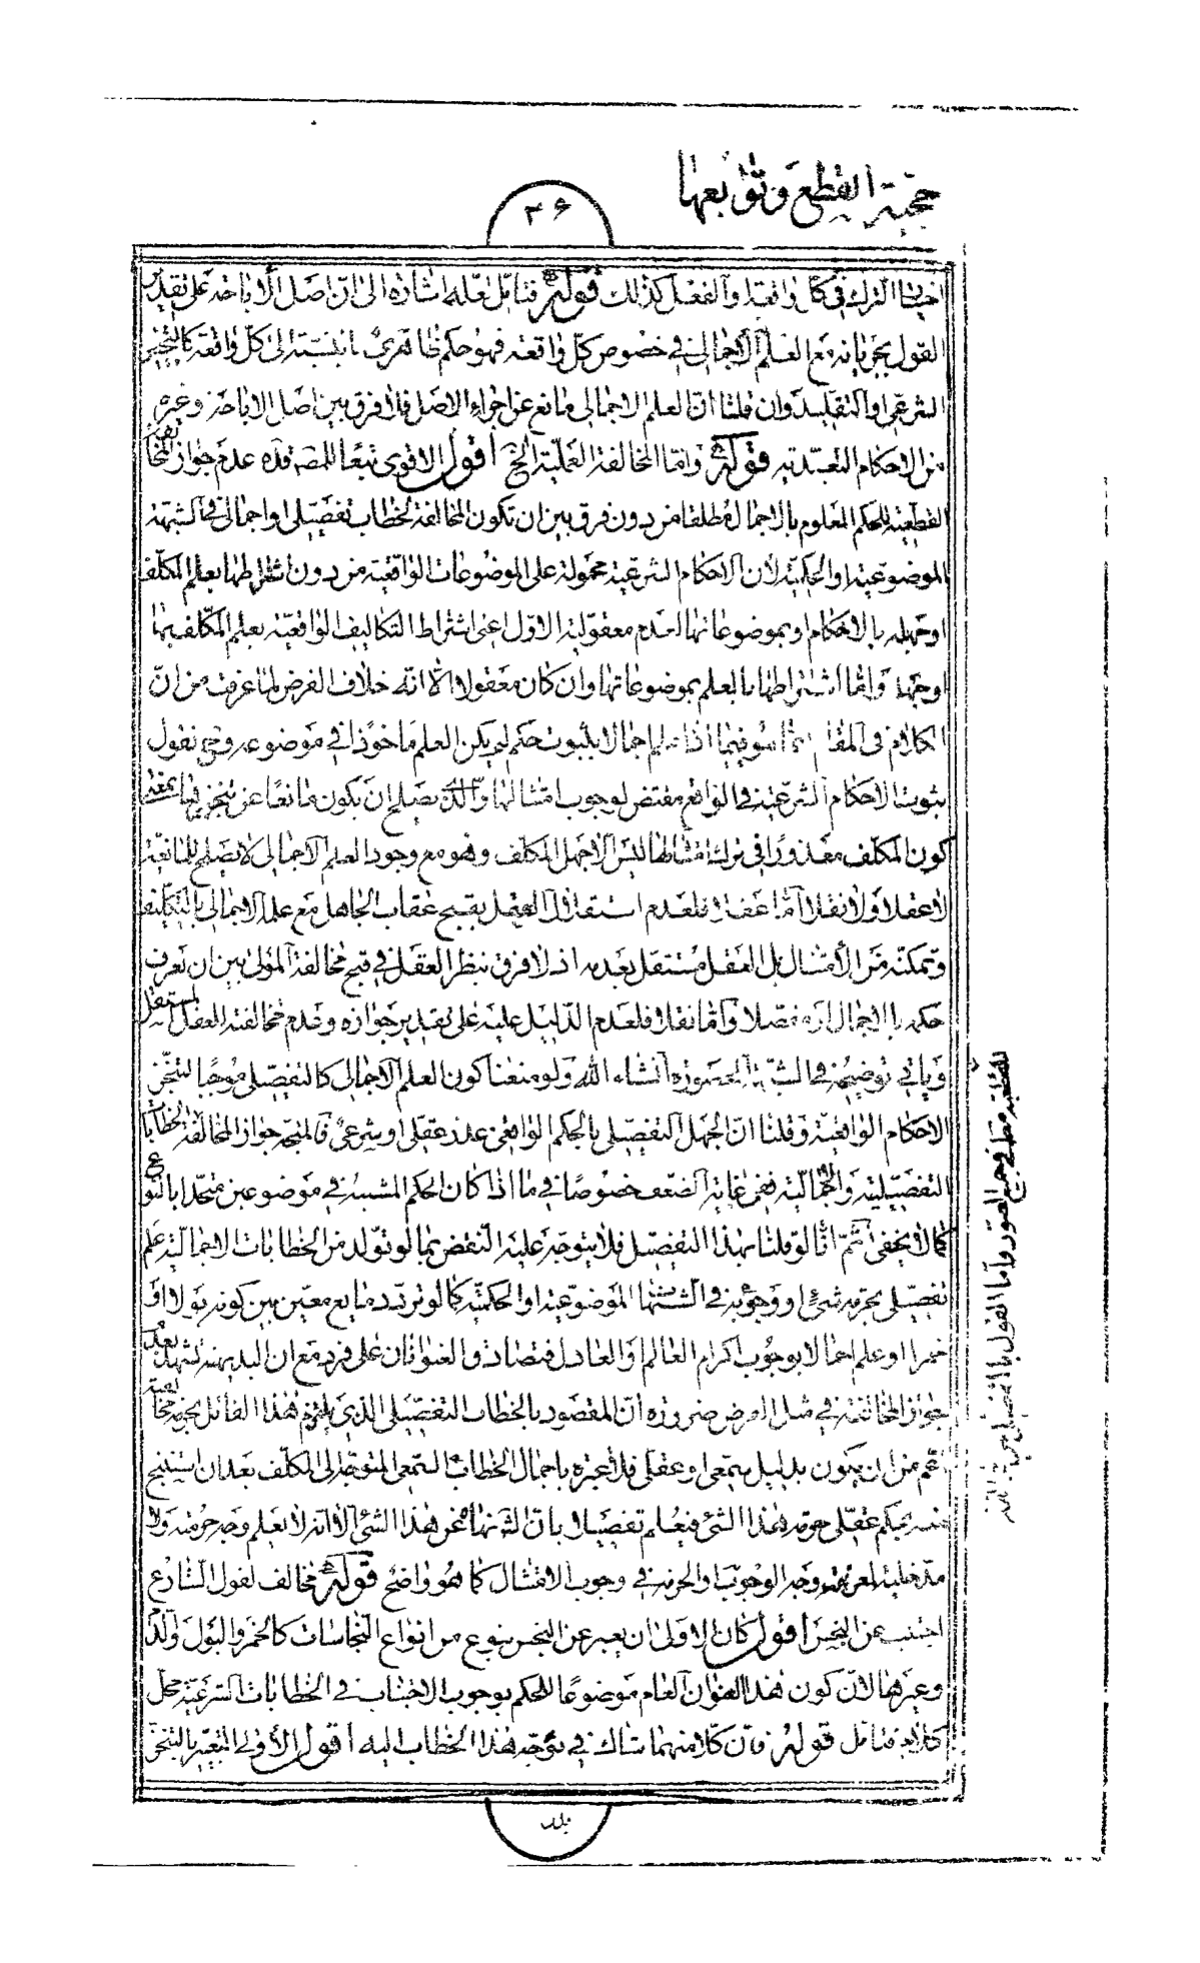 حجية القطع وتوابعها
٣۶
اختيار الترك في كل واقعة والفعل كذلك قوله فتأمل لعله اشارة الى ان اصل الاباحة على تقدير
القول بجريانه مع العلم الاجمالى في خصوص كل واقعة فهو حكم ظاهرى بالنسبة الى كل واقعة كالتخيير
الشرعى او التقليد وان قلنا ان العلم الاجمالى مانع عن اجراء الاصل فلا فرق بين اصل الاباحة وغيره
من الاحكام التعبدية قوله واما المخالفة العملية الخ اقول الاقوى تبعا للمص قده عدم جواز المخالفة
القطعية للحكم المعلوم بالاجمال مطلقا من دون فرق بين ان تكون المخالفة لخطاب تفصيلى او اجمالى في الشبهة
الموضوعية او الحكمية لان الاحكام الشرعية محمولة على الموضوعات الواقعية من دون اشتراطها بعلم المكلف
او جهله بالاحكام او بموضوعاتها لعدم معقولية الاول اعنى اشتراط التكاليف الواقعية بعلم المكلف بها
او جهله واما اشتراطها بالعلم بموضوعاتها وان كان معقولا الا انه خلاف الفرض لما عرفت من ان
الكلام في المقام انما هو فيما اذا علم اجمالا بثبوت حكم لم يكن العلم ماخوذا في موضوعه وح نقول
ثبوت الاحكام الشرعية في الواقع مقتض لوجوب امتثالها والذى يصلح ان يكون مانعا عن تنجزها بمعنى
كون المكلف معذورا في ترك امتثالها ليس الا جهل المكلف وهو مع وجود العلم الاجمالى لا يصلح للمانعية
لا عقلا ولا نقلا اما عقلا فلعدم استقلال العقل بقبح عقاب الجاهل مع علمه الاجمالى بالتكليف
وتمكنه من الامتثال بل العقل مستقل بعدمه اذ لا فرق بنظر العقل في قبح مخالفة المولى بين ان تعرف
حكمه بالاجمال او مفصلا واما نقلا فلعدم الدليل عليه على تقدير جوازه وعدم مخالفته للعقل المستقل
وياتى توضيحه في الشبهة المحصورة انشاء الله ولو منعنا كون العلم الاجمالى كالتفصيلى موجبا لتنجز
الاحكام الواقعية وقلنا ان الجهل التفصيلى بالحكم الواقعى عذر عقلى او شرعى فالمتجه جواز المخالفة
القطعية مط في جميع الصور واما القول بالتفصيل بين
الخطابات
التفصيلية والاجمالية ففى غاية الضعف خصوصا في ما اذا كان الحكم المشتبه في موضوعين متحدا بالنوع
كما لا يخفى ثم انا لو قلنا بهذا التفصيل فلا يتوجه عليه النقض بما لو تولد من الخطابات الاجمالية علم
تفصيلى بحرمة شىء او وجوبه في الشبهة الموضوعية او الحكمية كما لو تردد مايع معين بين كونه بولا او
خمرا او علم اجمالا بوجوب اكرام العالم والعادل فتصادق العنوانان على فرد مع ان البديهة تشهد بعدم
جواز المخالفة في مثل الفرض ضرورة ان المقصود بالخطاب التفصيلى الذى يلتزم هذا القائل بحرمة مخالفته
اعم من ان يكون بدليل سمعى او عقلى فلا عبرة باجمال الخطاب السمعى المتوجه الى المكلف بعد ان استنتج
منه بحكم عقلى حرمة هذا الشىء فيعلم تفصيلا بان الشارع نهاه عن هذا الشىء الا انه لا يعلم وجه حرمته ولا
مدخلية لمعرفة وجه الوجوب او الحرمة في وجوب الامتثال كما هو واضح قوله مخالف لقول الشارع
اجتنب عن النجس اقول كان الاولى ان يعبر عن النجس بنوع من انواع النجاسات كالخمر والبول والدم
وغيرها لان كون هذا العنوان العام موضوعا للحكم بوجوب الاجتناب في الخطابات الشرعية محل
كلام فتامل قوله فان كلا منهما شاك في توجه هذا الخطاب اليه اقول الاولى التعبير بالتنجز
بدل